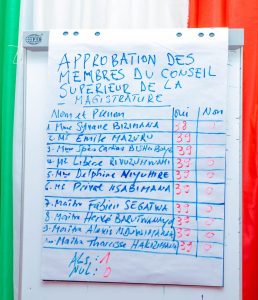 APPROBATION DES
MEMBRES DU CONSEIL
SUPERIEUR DE LA
MAGISTRATURE
Nom et Prénom Oui Non
1. Mme Sylvane BIZIMANA 39 0
2. Mr Emile MAZURU 39 0
3. Mme Spès Caritas 39 0
4. Mr Libère 39 0
5. Mme Delphine NIYUHIRE 39 0
6. Mr Privat HSABIMANA 39 0
7. Maître Fabien SEGATWA 39 0
8. Maître Hervé 39 0
9. Maître Alexis NDUWIMANA 39 0
10. Maître Tharcisse HAKIZIMANA 39 0
ABS: 1
NUL: 0